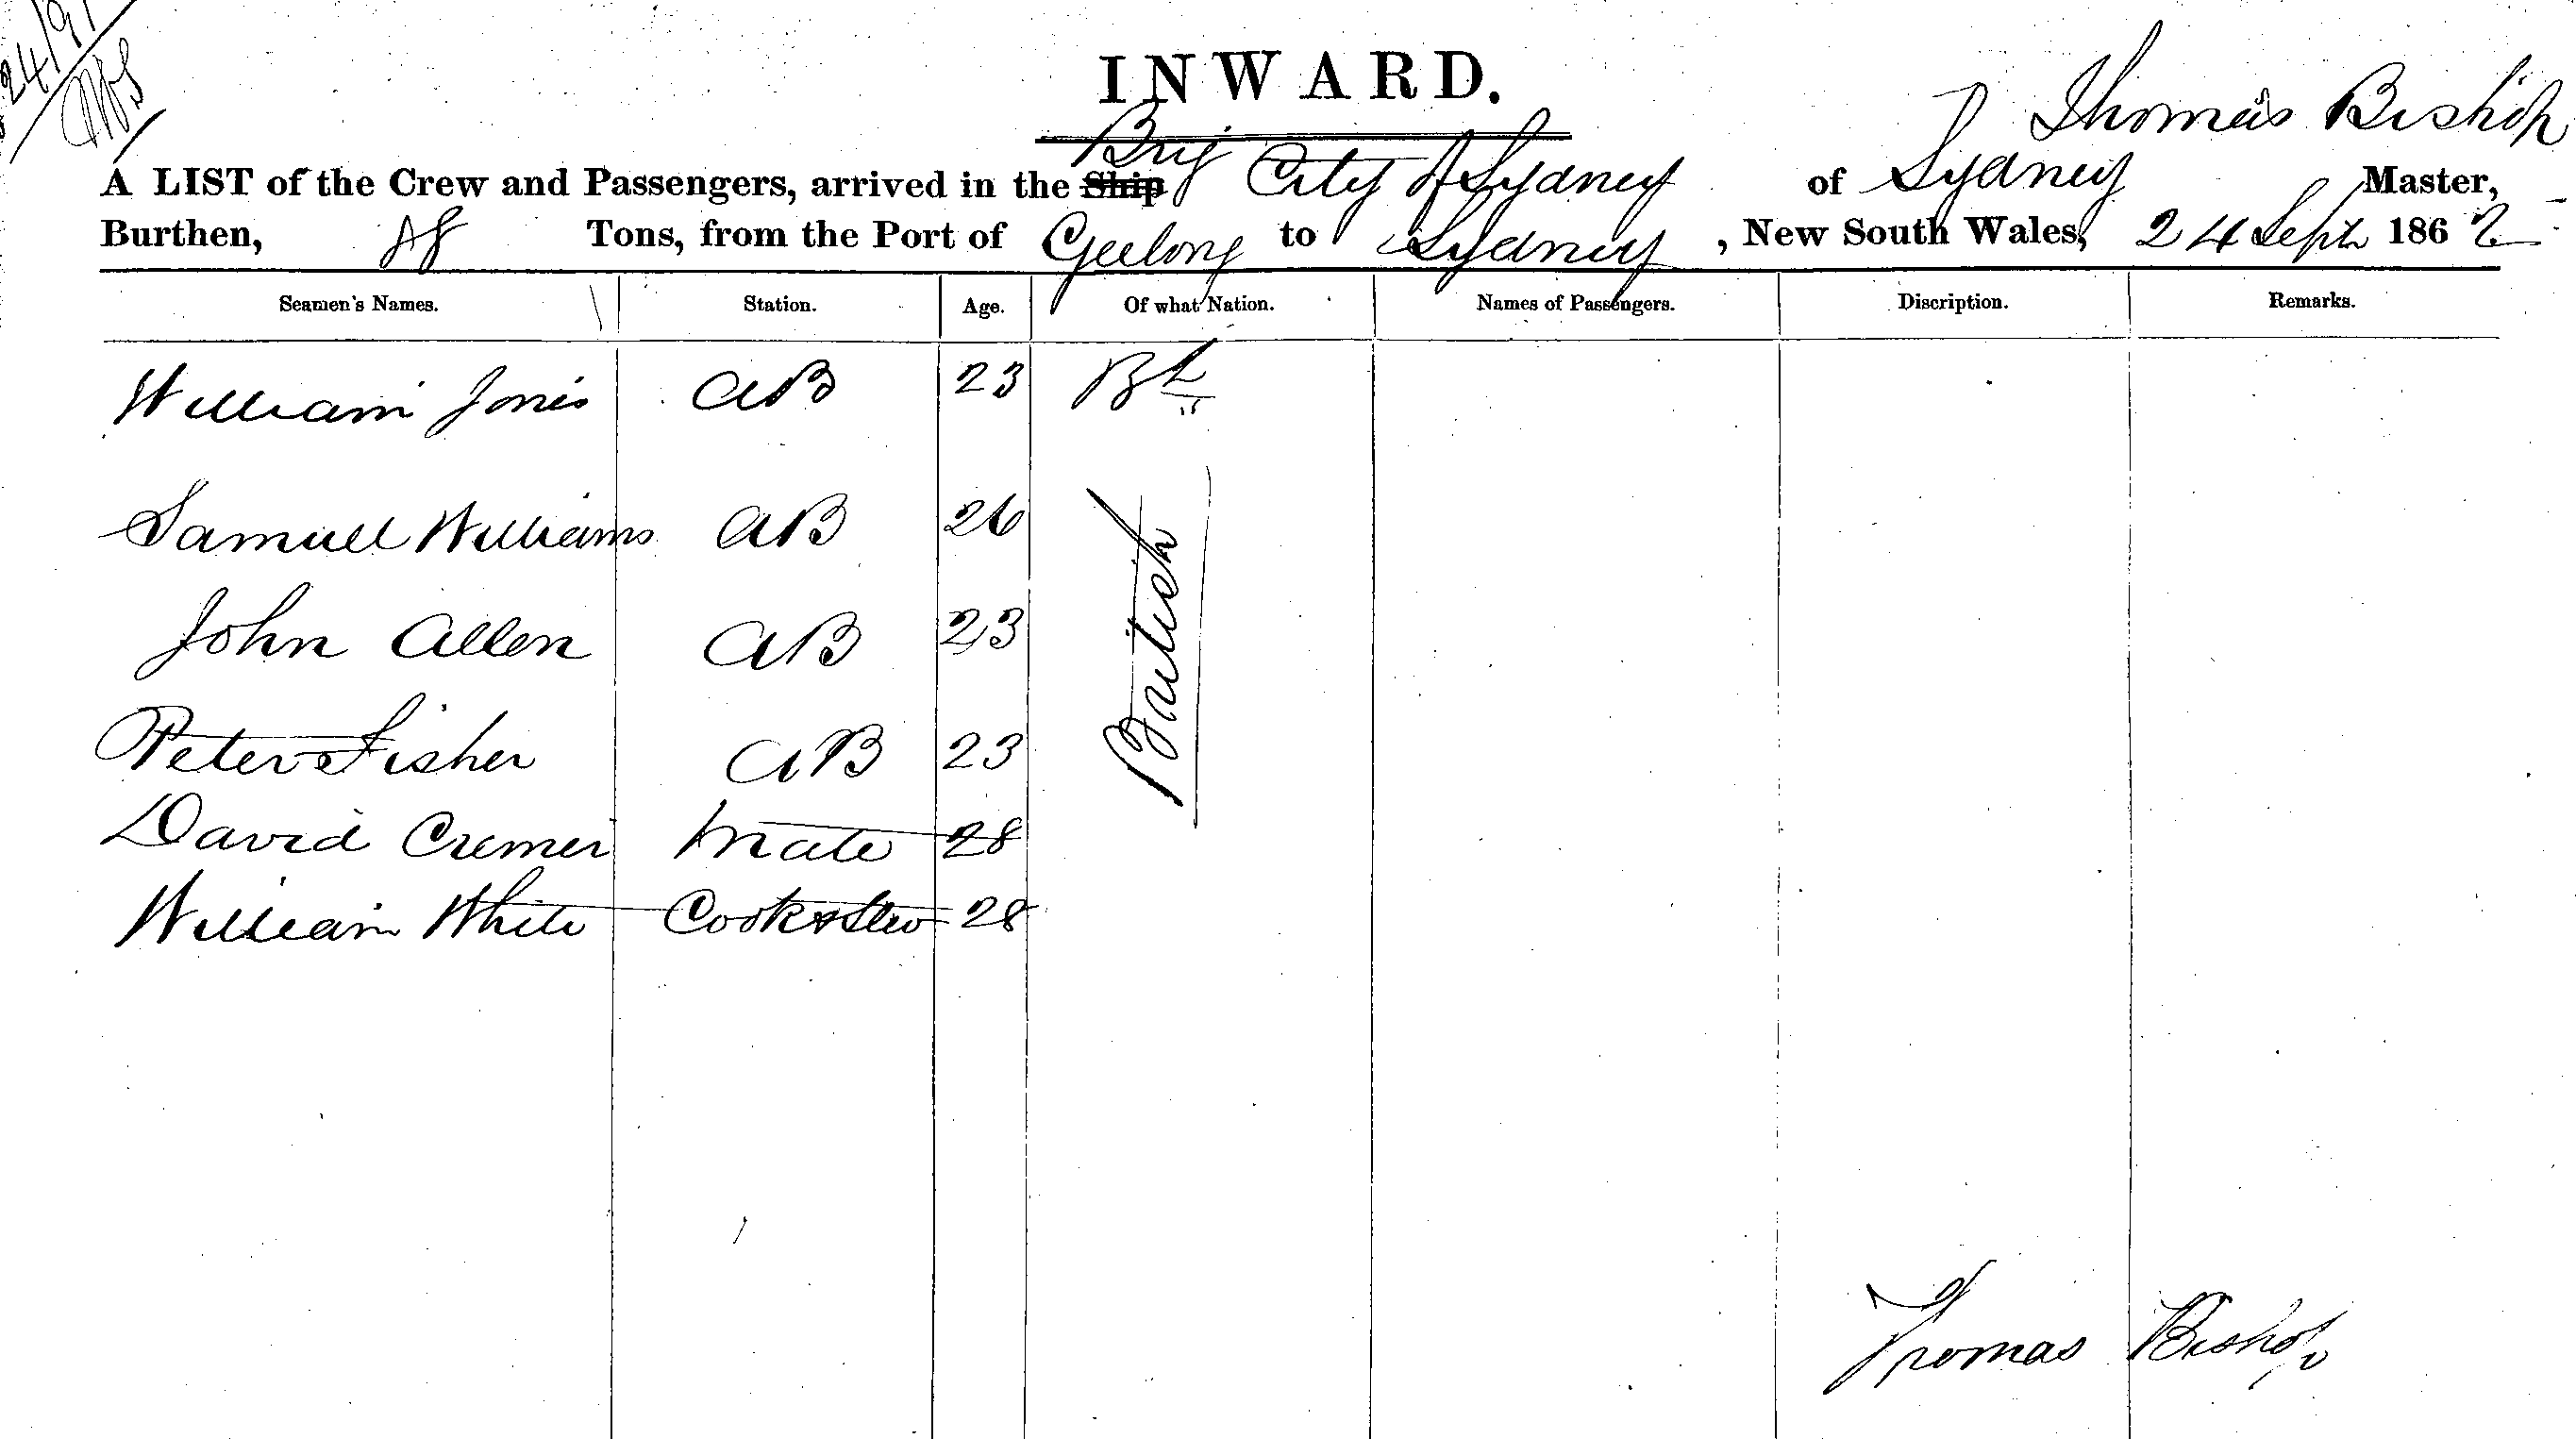 24/9/
INWARD.
Thomas Bishop
Brig
A LIST of the Crew and Passengers, arrived in the Ship City of Sydney of Sydney Master,
Burthen, Tons, from the Port of Geelong to Sydney, New South Wales, 24 Sept 1862
Seamen's Names. Station. Age. Of what Nation. Names of Passengers. Discription. Remarks.
William Jones AB 23 Bh
Samuell Williams AB 26
John Allen AB 23
British
Peter Fisher AB 23
David Cremer Mate 28
William White Cook & Stew 28
Thomas Bishop